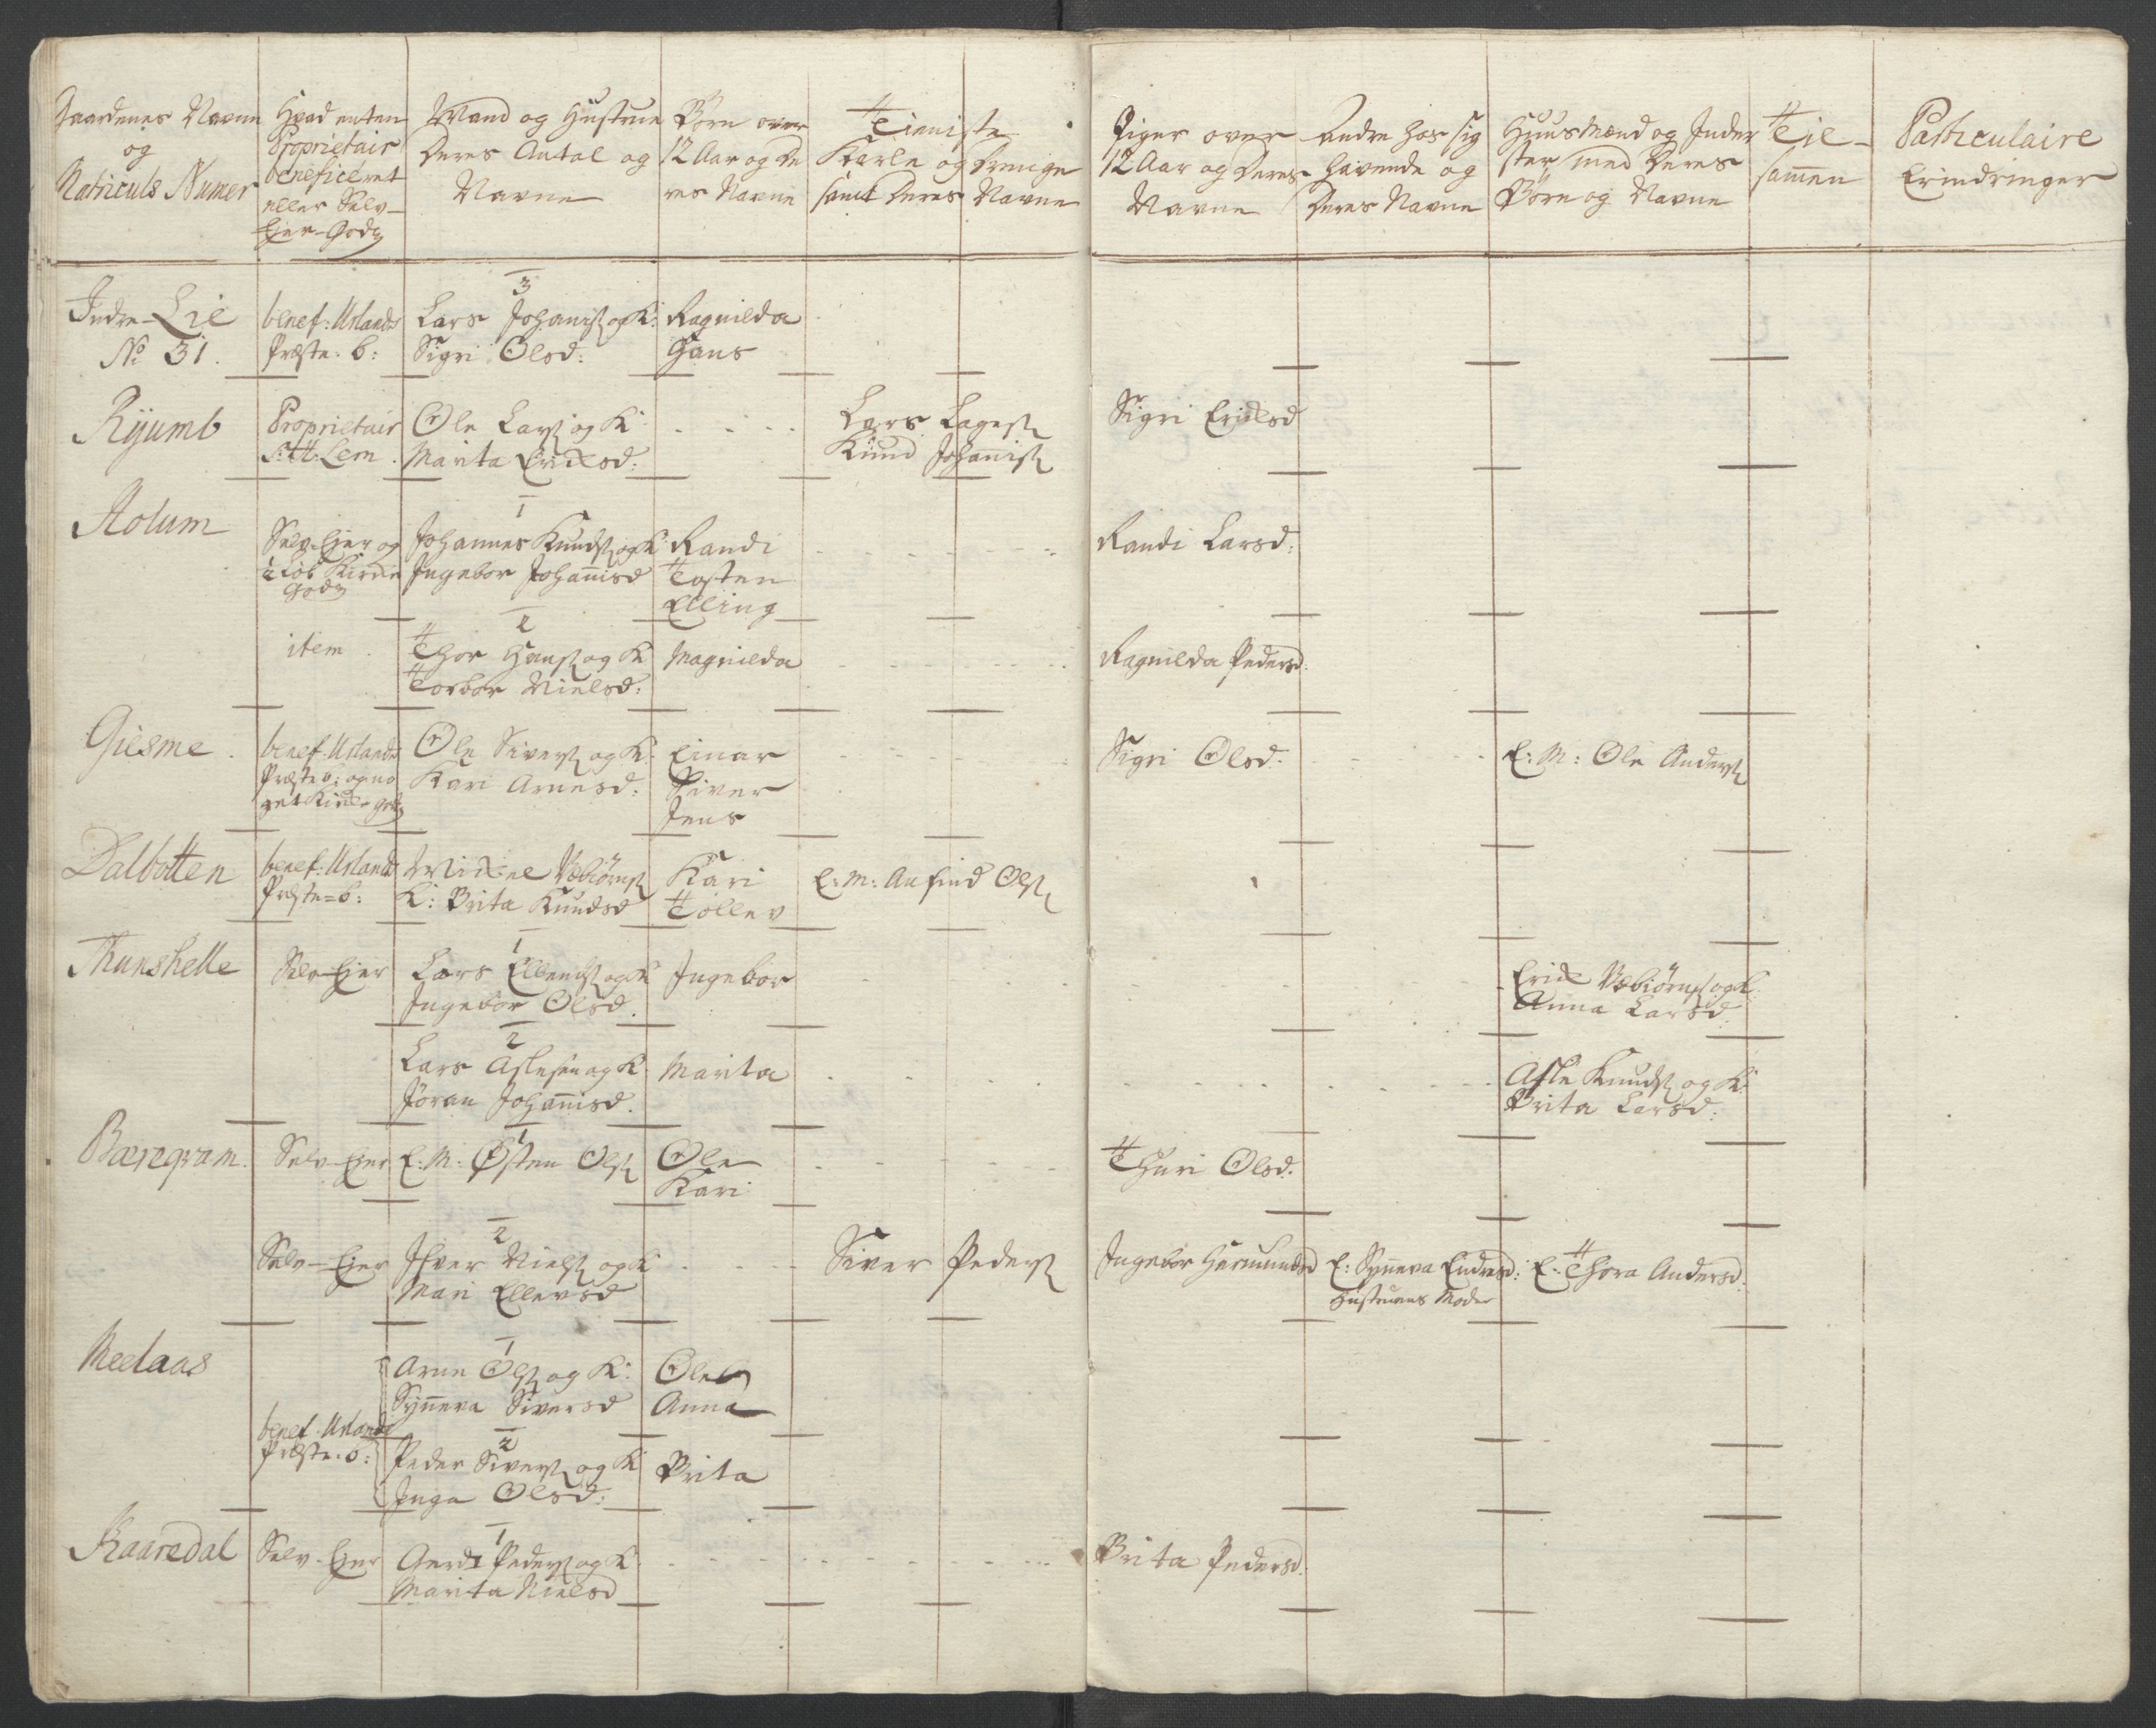 Gaardenes Navne
og
Matriculs Numer
Hvad enten
Proprietair
beneficeret
eller Selv-
Ejer-Godz
Mand og Hustrue
Deres Antal og
Navne
Børn over
12 Aar og De
res Navne
Tieniste
Karle og Drenge
samt Deres Navne
Piger over
12 Aar og Deres
Navne
Andre hos sig
havende og
Deres Navne
Huusmænd og Inder
ster med Deres
Børn og Navne
Til-
sam̄en
Particulaire
Erindringer
Indre-Lie
No 31.
benef: Urlands
Præste: b:
3
Lars Johanis: og K:
Sigri Olsd:
Ragnilda
Hans
Rÿumb
Proprietair
Lem.
Ole Lars: og K:
Marita Ericksd:
Lars Lages:
Knud Johan̄is:
Sigri Ericksd
Holum
Selv-Ejer og
Kirke
Godz
1
Johannes Knuds: og K
Ingebor Johan̄isd
Randi
Tosten
Elling
Randi Larsd:
item
2
Thor Hans: og K
Torbor Nielsd:
Magnilda
Ragnilda Pedersd.
Giesme.
benef. Urlands
Præste b: og no
get Kirke godz
Ole Sivers: og K.
Kari Arnesd:
Einar
Siver
Jens
Sigri Olsd:
E: M: Ole Anders:
Dalbotten
benef: Urlands
Præste=b:
Mickel Vebiørns:
K: Brita Knudsd
Kari
Tollev
E: M: Anfind Ols:
Thunshelle
Selv-Ejer
1
Lars Ellends: og K
Ingebor Olsd.
Ingebor
Erick Vebiørns: og K.
Anna Larsd.
2
Lars Aslesen og K
Jøran Johan̄isd.
Marita
Asle Knuds: og K:
Brita Larsd:
Bæregvam.
Selv-Ejer
1
E: M: Østen Ols:
Ole
Kari
Thuri Olsd:
Selv-Ejer
2
Ifver Niels: og K
Mari Ellevsd
Siver Peders:
Ingebor Hermundsd
E: Syn̄eva Endresd:
Hustruens Moder
E: Thora Andersd:
Melaas
benef. Urlands
Præste: b:
1
Arne Ols: og K:
Syn̄eva Siversd
Ole
Anna
2
Peder Sivers: og K
Inga Olsd:
Brita
Kaaredal
Selv-Ejer
1
Gerdt Peders: og K
Marita Nielsd
Brita Pedersd.